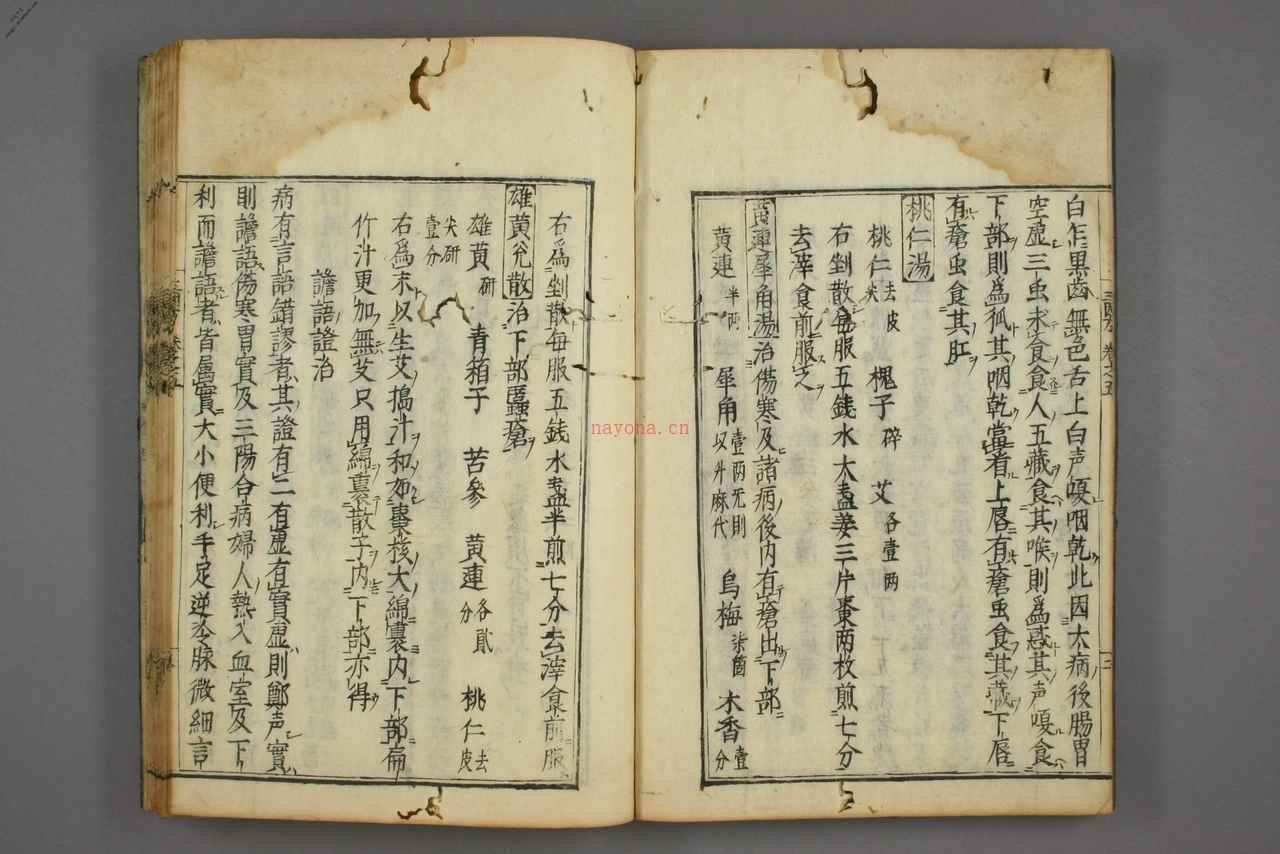 白怎黒歯無色舌上白声嗄咽乾此因大病後腸胃
空虚三虫求食食人五藏食其喉則為惑其声嗄食
下部則為狐其咽乾當看上唇有瘡虫食其藏下唇
有瘡虫食其肛
桃仁湯
桃仁去皮尖 槐子碎 艾各壹兩
右剉散毎服五銭水大盞姜三片棗兩枚煎七分
去滓食前服之
黄連犀角湯治傷寒及諸病後内有瘡出下部
黄連半兩 犀角壹兩无則以升麻代 烏梅柒箇 木香壹分
右為剉散毎服五銭水盞半煎七分去滓食前服
雄黄兊散治下部䘌瘡
雄黄研 青箱子 苦參 黄連各貳分 桃仁去皮
尖研壹分
右為末以生艾搗汁和如棗核大綿裹内下部扁
竹汁更加無艾只用綿裹散子内下部亦得
譫語證治
病有言語錯謬者其證有二有虚有實虚則鄭声實
則譫語傷寒胃實及三陽合病婦人熱入血室及下
利而譫語者皆属實大小便利手足逆冷脉微細言
nayona.cn